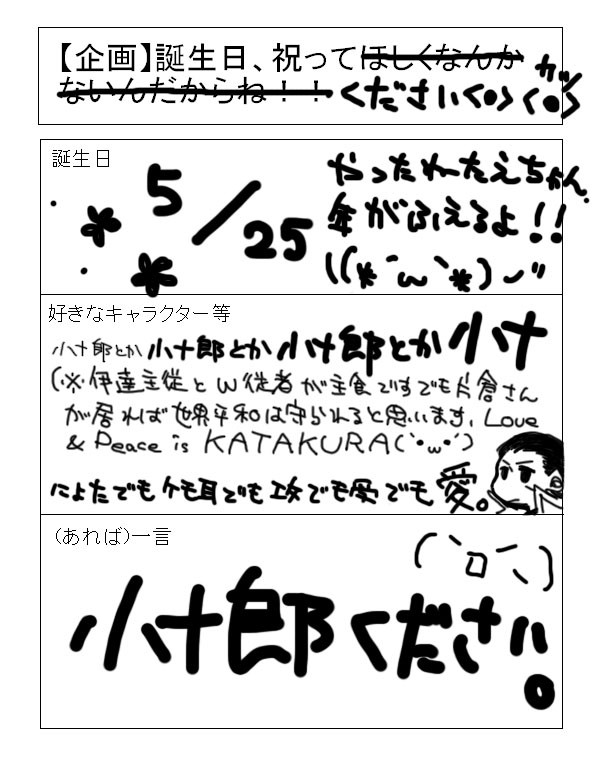 【企画】誕生日、祝ってほしくなんか
ないんだからね！！ください<●><●>
カッ
誕生日
5/25
やったねたえちゃん、
年がふえるよ!!
((*´ω`*)ノ"
好きなキャラクター等
小十郎とか小十郎とか小十郎とか小十
(※伊達主従とW従者が主食ですでも片倉さん
が居れば世界平和は守られると思います。Love
& Peace is KATAKURA(`・ω・´)
にょたでもケモ耳でも攻でも受でも愛。
(あれば)一言
(｀ロ´、)
小十郎ください。